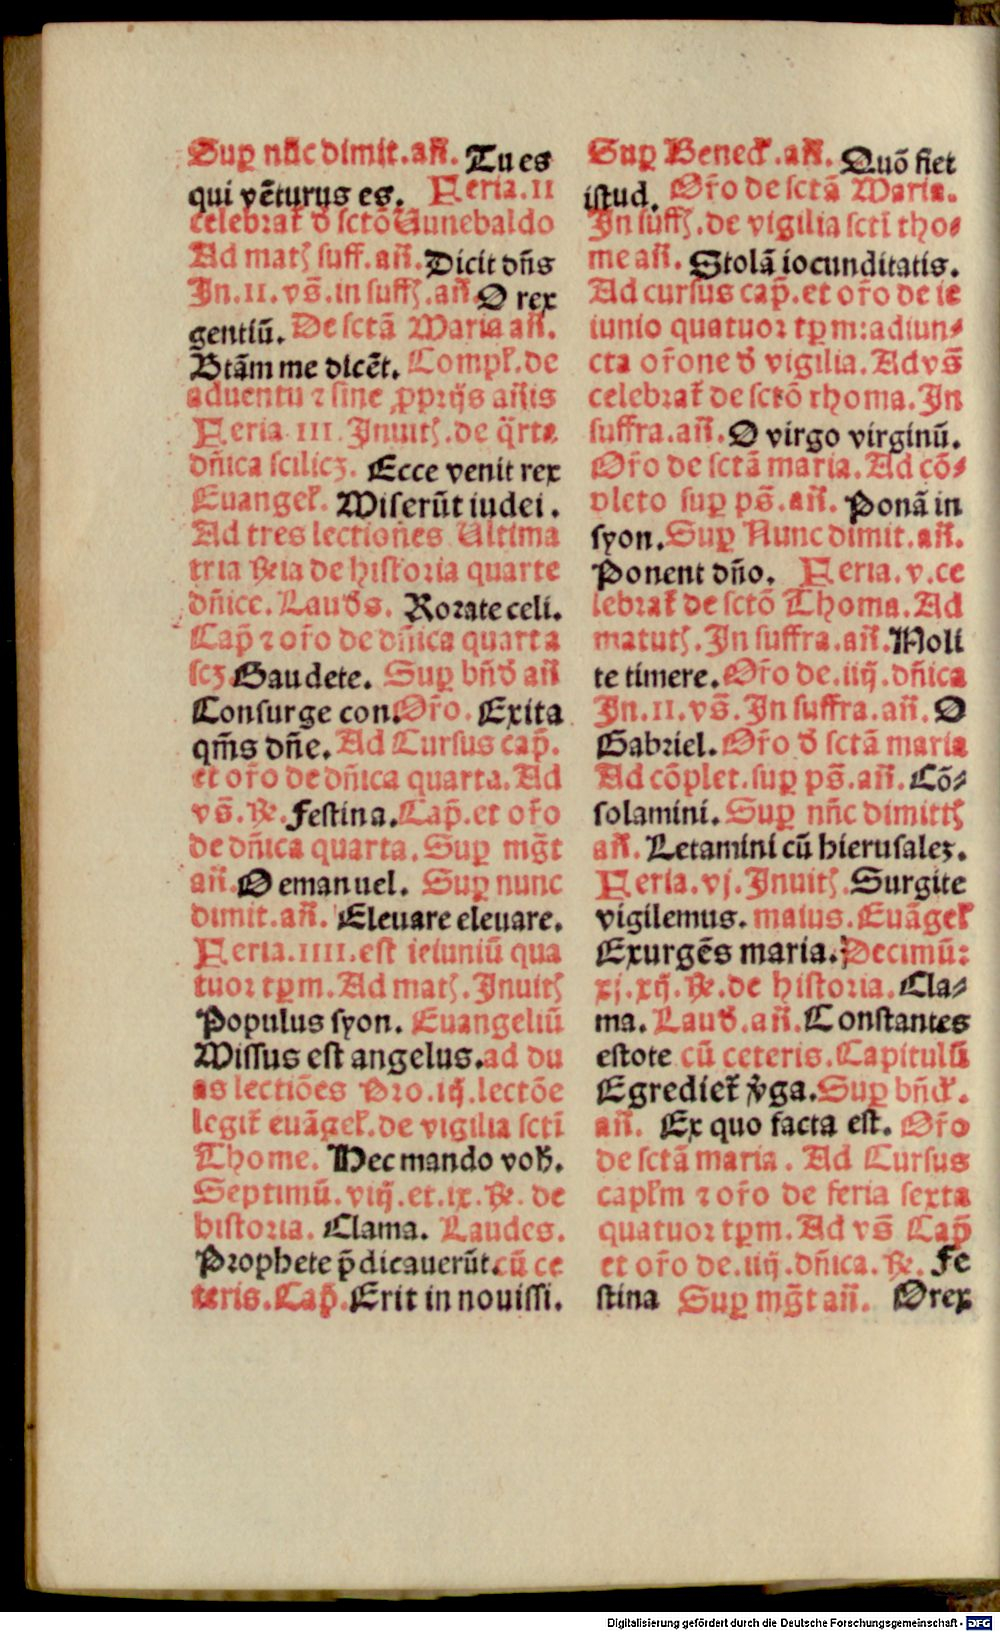 Sup nūc dimit.an̄. Tu es
qui vēturus es. Feria.II
celebrat̄ d̄ sctō Uunebaldo
Ad matꝭ suff.an̄.Dicit dn̄s
In.II.vs̄.in suffꝭ.an̄.O rex
gentiū. De sctā Maria an̄.
Btām me dicēt. Compl̄.de
aduentu ⁊ sine ꝓprijs an̄is
Feria III. Inuitꝭ.de q̄rta
dn̄ica scilicꝫ. Ecce venit rex
Euangel̄. Miserūt iudei.
Ad tres lectiones Ultima
tria ℞ia de historia quarte
dn̄ice. Laud̄s. Rorate celi.
Cap̄ ⁊ or̄o de dn̄ica quarta
scꝫ Gaudete. Suꝑ bn̄d̄ an̄
Consurge con.Or̄o. Exita
qm̄s dn̄e. Ad Cursus cap̄.
et or̄o de dn̄ica quarta. Ad
vs̄.℞.Festina.Cap̄.et or̄o
de dn̄ica quarta. Suꝑ mḡt
an̄.O emanuel. Suꝑ nunc
dimit.an̄. Eleuare eleuare.
Feria.IIII.est ieiuniū qua
tuor tꝑm. Ad matꝭ. Inuitꝭ
Populus syon. Euangeliū
Missus est angelus.ad du
as lectiōes Pro.iij.lectōe
legit̄ euāgel̄.de vigilia scti
Thome. Hec mando vob̄.
Septimū.viij.et.ix.℞. de
historia. Clama. Laudes.
Prophete p̄dicauerūt.cū ce
teris.Cap̄.Erit in nouissi.
Suꝑ Bened̄.an̄. Quō fiet
istud. Or̄o de sctā Maria.
In suffꝭ.de vigilia scti tho-
me an̄. Stolā iocunditatis.
Ad cursus cap̄.et or̄o de ie
iunio quatuor tꝑm:adiun-
cta or̄one d̄ vigilia. Ad vs̄
celebrat̄ de sctō thoma. In
suffra.an̄. O virgo virginū.
Or̄o de sctā maria. Ad cō-
pleto suꝑ ps̄.an̄. Ponā in
syon.Suꝑ Nunc dimit.an̄.
Ponent dn̄o. Feria.v.ce
lebrat̄ de sctō Thoma. Ad
matutꝭ. In suffra.an̄.Noli
te timere. Or̄o de.iiij.dn̄ica
In.II.vs̄. In suffra.an̄. O
Gabriel. Or̄o d̄ sctā maria
Ad cōplet.suꝑ ps̄.an̄. Cō-
solamini. Suꝑ nn̄c dimittꝭ
an̄. Letamini cū hierusaleꝫ.
Feria.vj. Inuitꝭ.Surgite
vigilemus. maius. Euāgel̄
Exurgēs maria. Decimū:
xj.xij.℞.de historia. Cla-
ma. Laud̄.an̄.Constantes
estote cū ceteris. Capitulū
Egrediet̄ v̄ga.Suꝑ bn̄d̄.
an̄. Ex quo facta est. Or̄o
de sctā maria. Ad Cursus
capl̄m ⁊ or̄o de feria sexta
quatuor tꝑm. Ad vs̄ Cap̄
et or̄o de.iiij.dn̄ica.℞. Fe
stina Suꝑ mḡt an̄. O rex
Digitalisierung gefördert durch die Deutsche Forschungsgemeinschaft - DFG